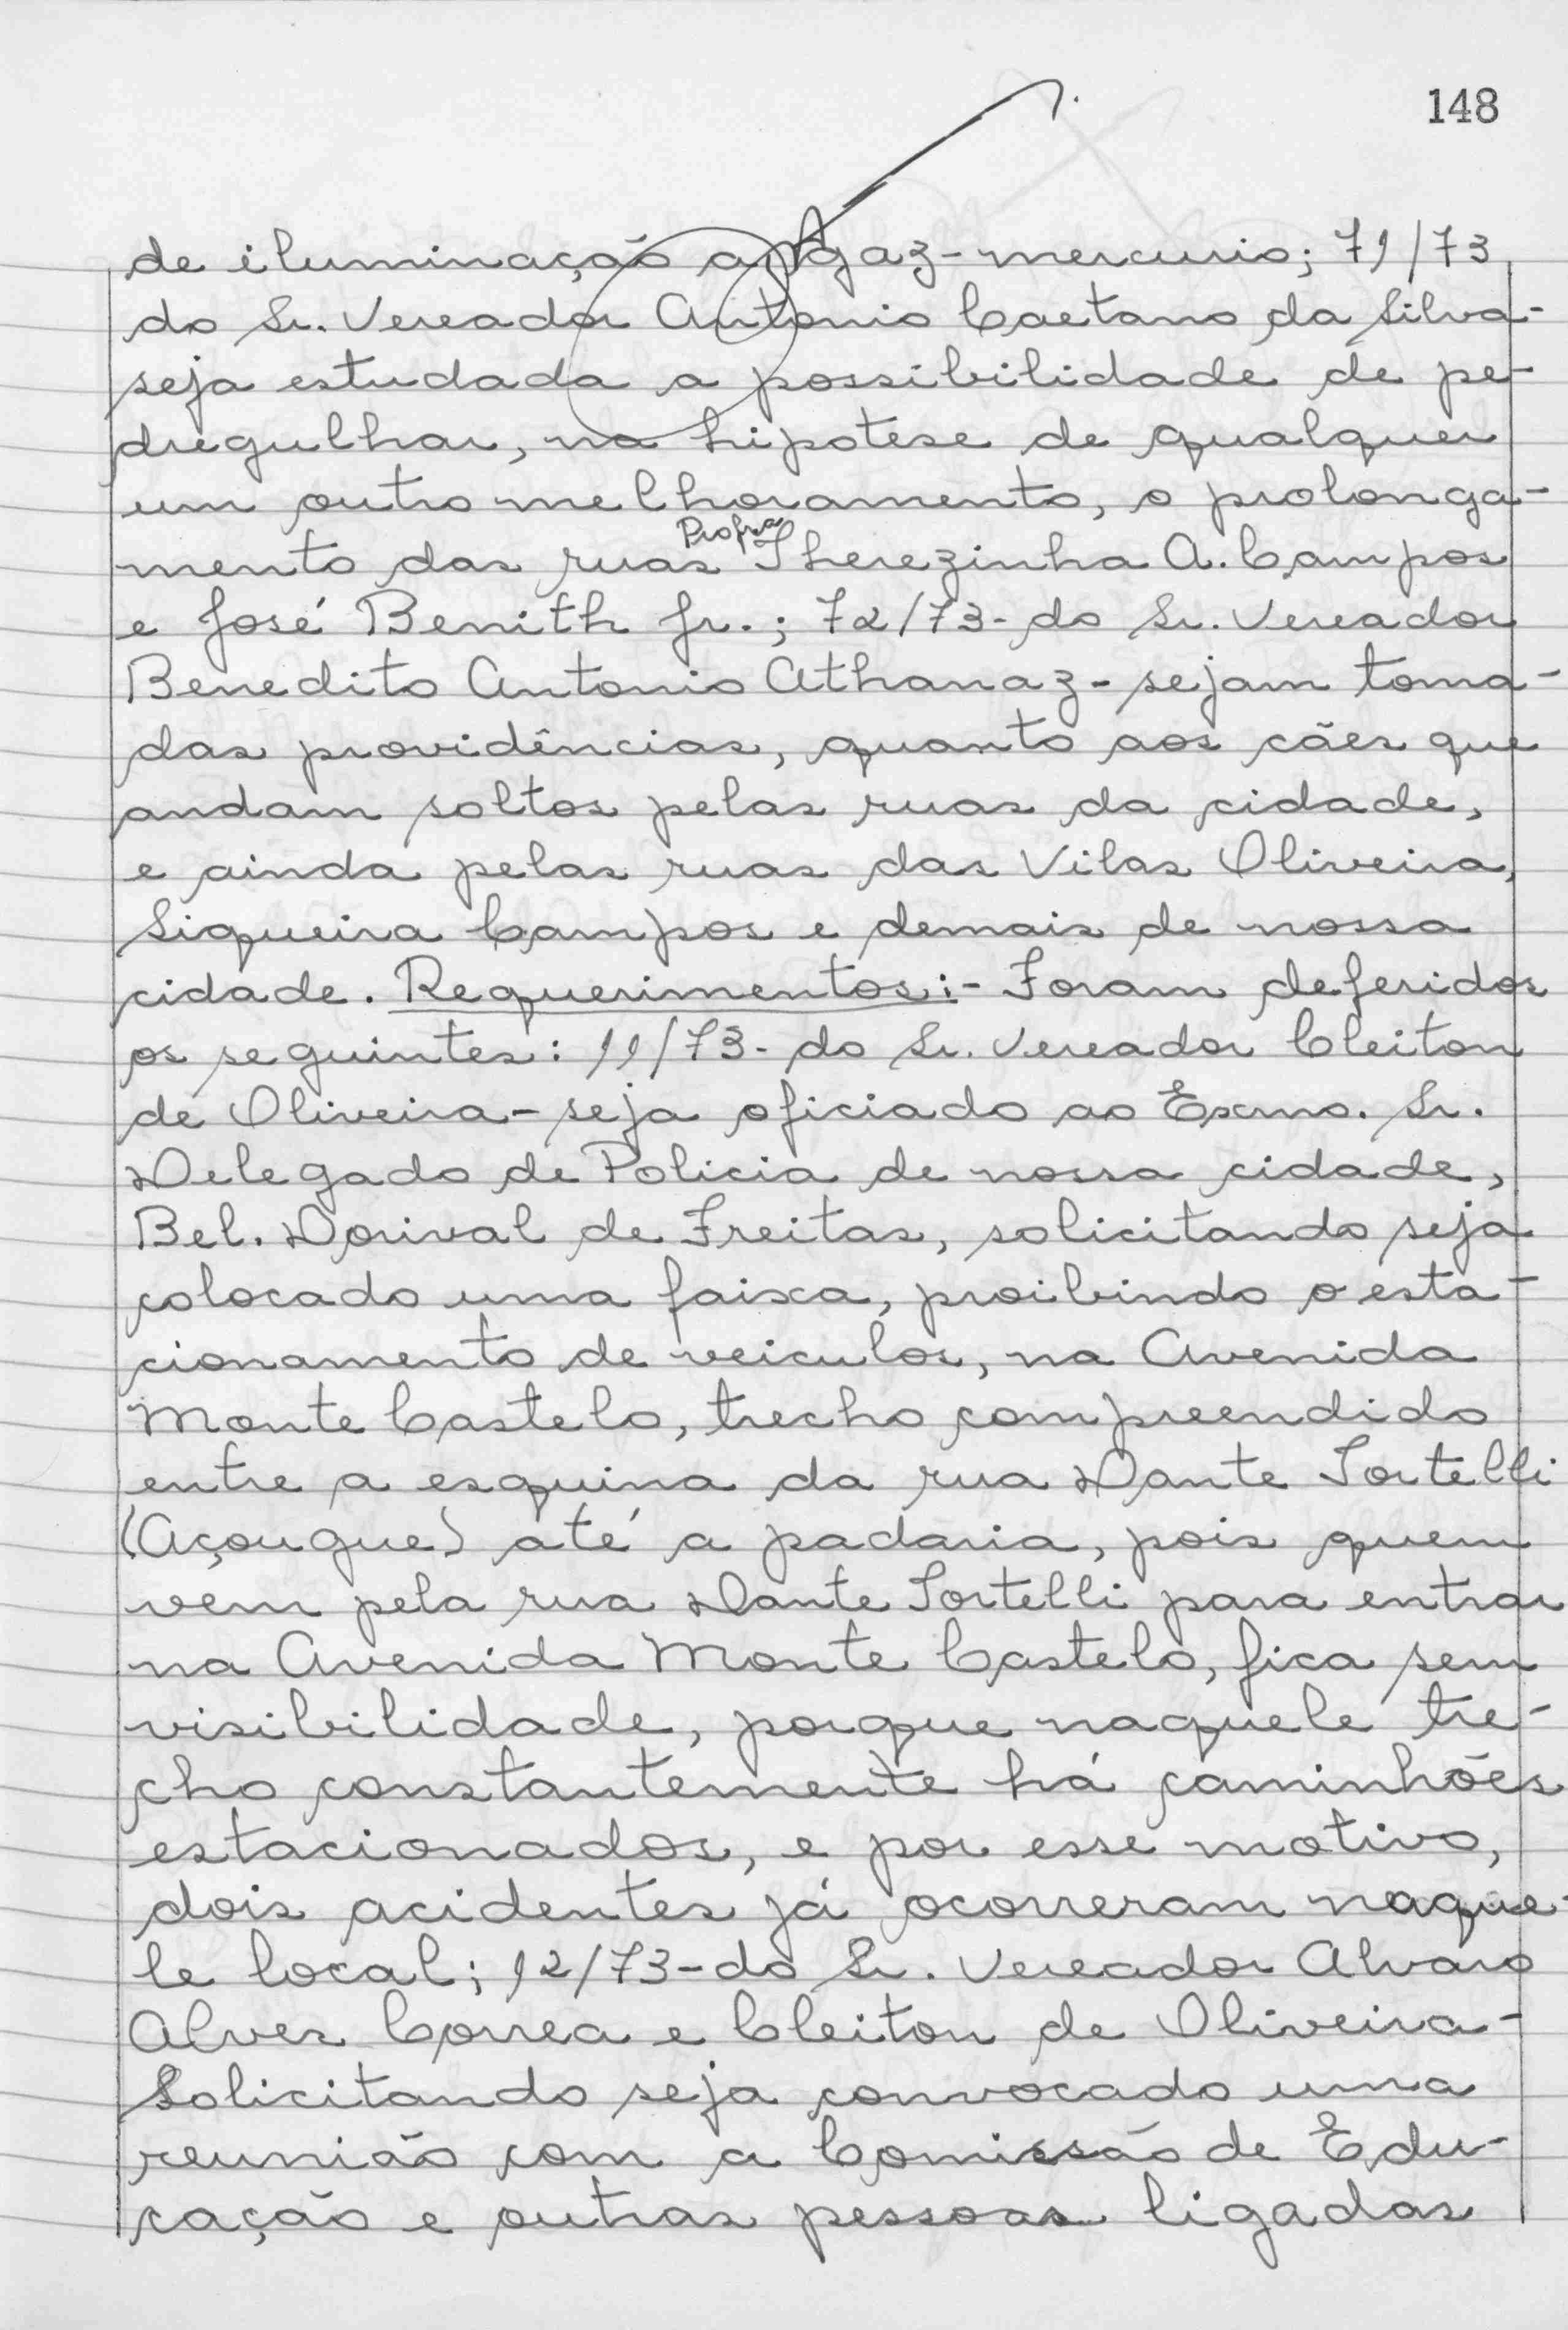 148
de iluminação a gaz-mercurio; 71/73
do Sr. Vereador Antonio Caetano da Silva-
seja estudada a possibilidade de pe-
dregulhar, na hipotese de qualquer
um outro melhoramento, o prolonga-
mento das ruas Profra Therezinha A. Campos
e José Benith Jr.; 72/73- do Sr. Vereador
Benedito Antonio Athanaz- sejam toma-
das providências, quanto aos cães que
andam soltos pelas ruas da cidade,
e ainda pelas ruas das Vilas Oliveira,
Siqueira Campos e demais de nossa
cidade. Requerimentos:- Foram deferidos
os seguintes: 11/73- do Sr. Vereador Cleiton
de Oliveira- seja oficiado ao Exmo. Sr.
Delegado de Policia de nossa cidade,
Bel. Dorival de Freitas, solicitando seja
colocado uma faixa, proibindo o esta-
cionamento de veiculos, na Avenida
Monte Castelo, trecho compreendido
entre a esquina da rua Dante Tortelli
(Açougue) até a padaria, pois quem
vem pela rua Dante Tortelli para entrar
na Avenida Monte Castelo, fica sem
visibilidade, porque naquele tre-
cho constantemente há caminhões
estacionados, e por esse motivo,
dois acidentes já ocorreram naque-
le local; 12/73-do Sr. Vereador Alvaro
Alves Correa e Cleiton de Oliveira-
Solicitando seja convocado uma
reunião com a Comissão de Edu-
cação e outras pessoas ligadas